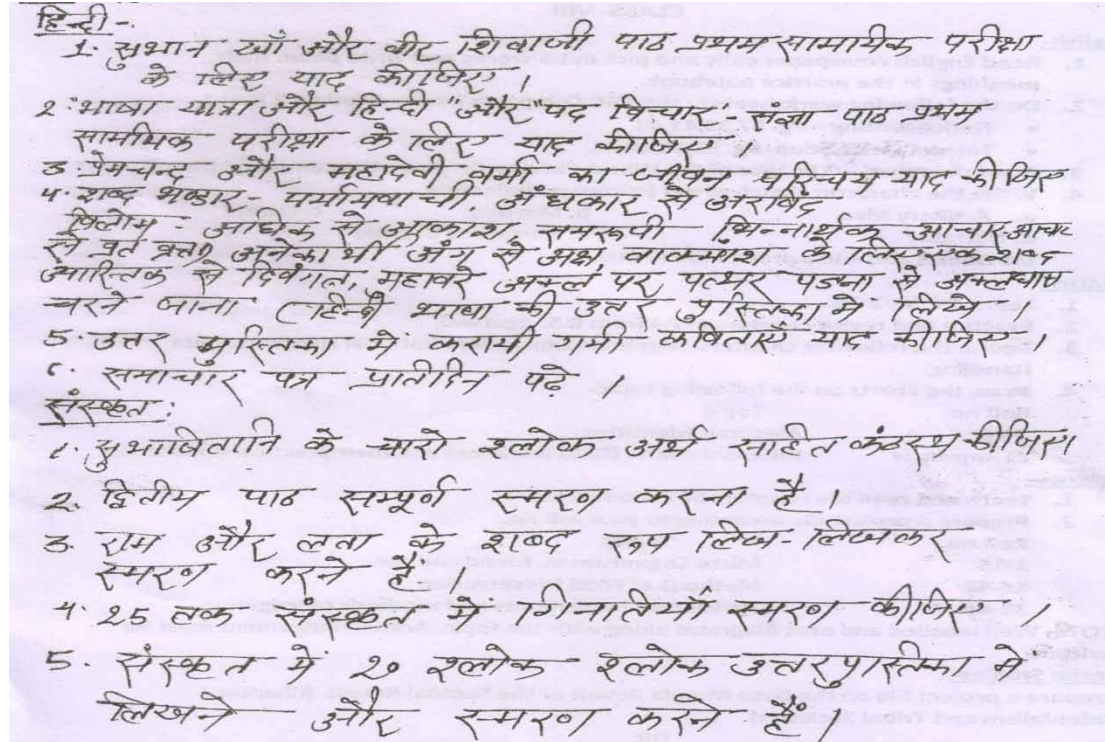 हिन्दी :-
1. सुभान खाँ और वीर शिवाजी पाठ प्रथम सामायिक परीक्षा
के लिए याद कीजिए।
2 "भाषा यात्रा और हिन्दी" और "पद विचार - संज्ञा पाठ प्रथम
सामयिक परीक्षा के लिए याद कीजिए।
3. प्रेमचन्द और महादेवी वर्मा का जीवन परिचय याद कीजिए
4. शब्द भण्डार - पर्यायवाची अँधकार से अरविंद
विलोम - अधिक से आकाश समरूपी भिन्नार्थक आचार-
से व्रत अनेकार्थी अंग से अक्ष वाक्यांश के लिए एक शब्द
आस्तिक से दिवंगत, महावरे अक्ल पर पत्थर पड़ना से अक्ल घास
चरने जाना हिन्दी भाषा की उत्तर पुस्तिका में लिखें
5. उत्तर पुस्तिका में कराया गया कविताएँ याद कीजिए।
6. समाचार पत्र प्रतिदिन पढ़े।
संस्कृत :
1. सुभाषितानि के चारो श्लोक अर्थ सहित कंठस्थ कीजिए।
2. द्वितीय पाठ सम्पूर्ण स्मरण करना है।
3. राम और लता के शब्द रूप लिख-लिखकर
स्मरण करने है।
4. 25 तक संस्कृत में गिनतियाँ स्मरण कीजिए।
5. संस्कृत में २० श्लोक श्लोक उत्तरपुस्तिका में
लिखने और स्मरण करने हैं।